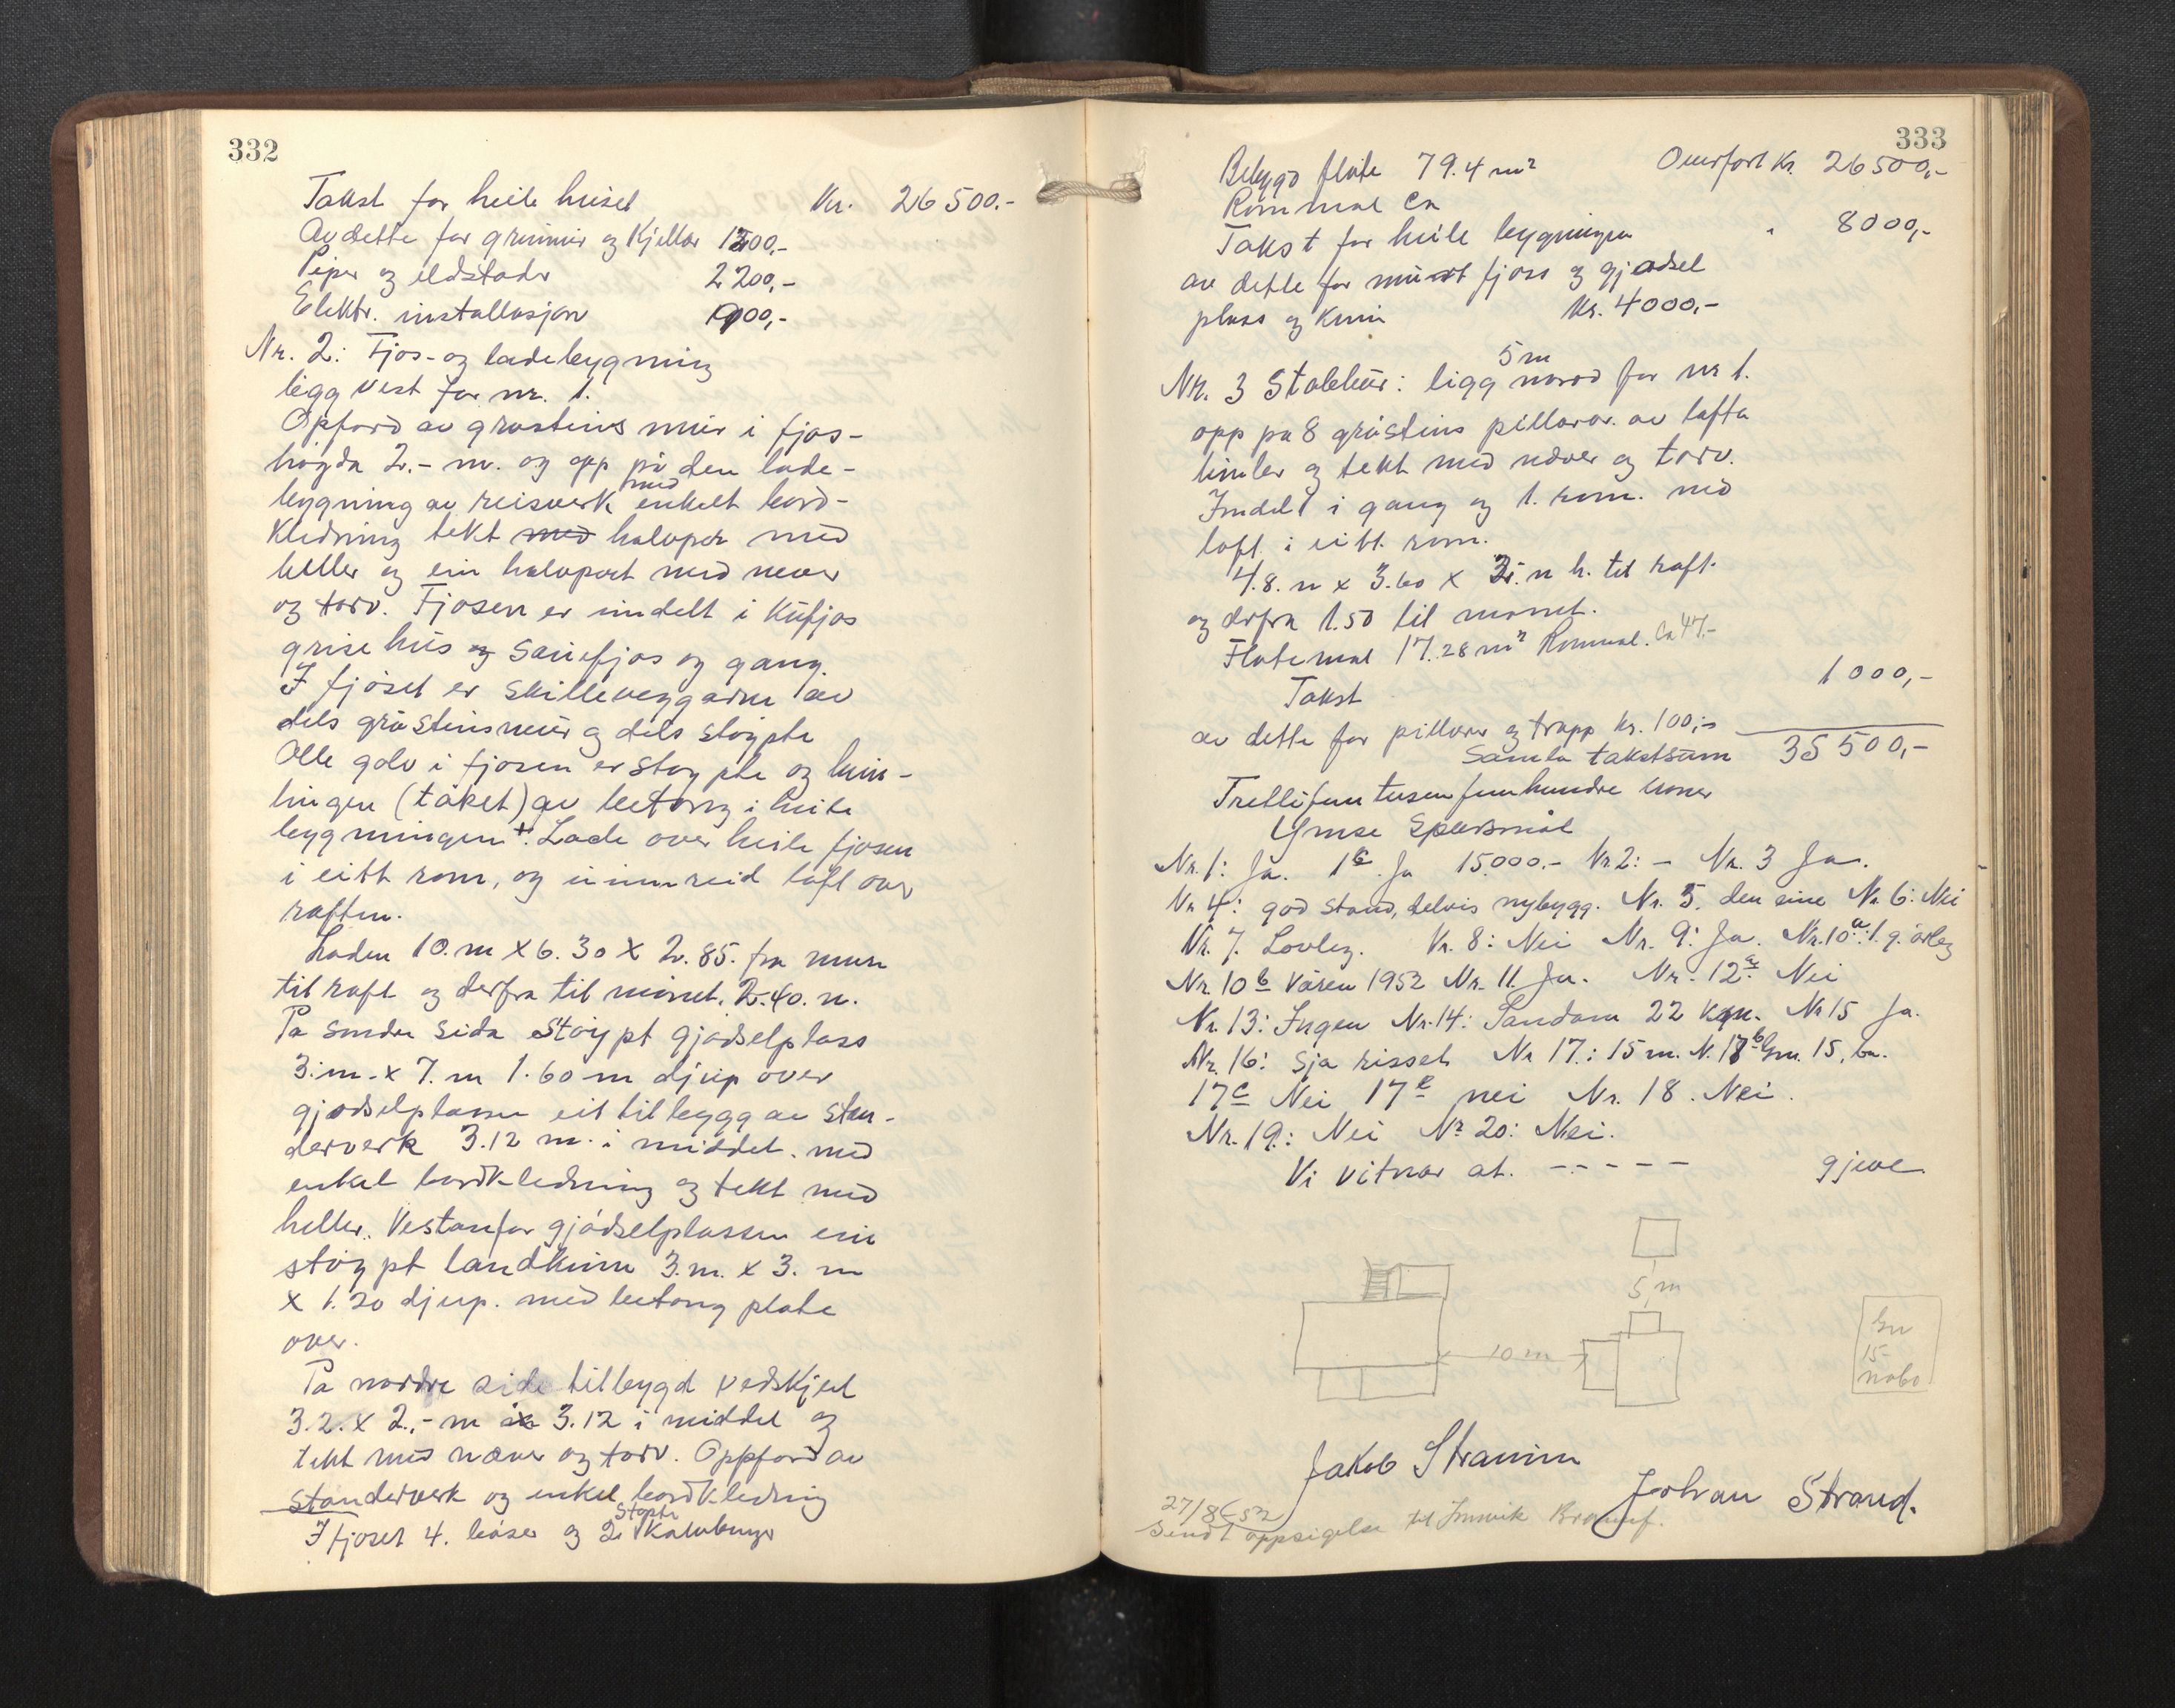 332
Takst for heile huset Kr. 26500.-
Av dette for grunnur og Kjellar 1500,-
Piper og ildstader 2200,-
Elektr. installasjon 900,-
Nr. 2: Fjos- og ladebygning
ligg vest for nr. 1.
Opførd av gråsteins mur i fjos-
høgda 2.- m. og opp på den lade-
bygning av reisverk med enkelt bord-
Kledning tekt med halvpar med
heller og ein halvpart med never
og torv. Fjosen er inndelt i Kufjos
grisehus og Sauefjos og gang.
I fjøset er skilleveggarne av
dels gråsteinsmur og dels støypte
Alle golv i fjosen er støypte og him-
lingen (taket) av betong i heile
bygningen +. Lade over heile fjosen
i eitt rom, og ein innreid loft over
raften.
Laden 10. m x 6.30 x 2.85. fra muren
til raft og derfra til mønet. 2.40. m.
På søndre sida støypt gjødselplass
3.m. x 7. m 1.60 m djup over
gjødselplassen eit tilbygg av sten-
derverk 3.12 m. i middel. med
enkel bordkledning og tekt med
heller. Vestanfor gjødselplassen ein
støypt landkum 3.m. x 3. m
x 1.20 djup. med betong plate
over.
På nordre side tilbygd vedskjul
3.2. x 2,- m x 3.12 i middel og
tekt med næver og torv. Oppførd av
standerverk og enkel bordkledning
I fjoset 4. båser og 2 støpte Kalvbinger
333
Bebygd flate 79.4 m² Overført Kr. 26500,-
Rommål Ca
Takst for heile bygningen " 8000,-
av dette for murt fjøs og gjødsel
plass og Kum Kr. 4000,-
Nr. 3 Stabbur: ligg 5 m nord for nr 1.
opp på 8 gråsteins pillarar. av lafta
timber og tekt med næver og torv.
Inndelt i gang og 1. rom. med
loft i eitt rom.
4.8. m x 3.60 x 2. m h. til raft.
og derfra 1.50 til mønet.
Flatemål 17.28 m² Rommål. Ca 47.-
Takst 1000,-
av dette for pillarer og trapp kr. 100,-
Samla takstsum 35500,-
Trettifem tusen fem hundre kroner
Ymse Spørsmål
Nr. 1: Ja. 1c. Ja 15.000.- Nr 2: - Nr. 3 Ja.
Nr 4: god stand, delvis nybygg. Nr. 5. den eine Nr 6: Nei
Nr. 7. Lovleg. Nr. 8: Nei Nr. 9: Ja. Nr. 10a: 1. g. årleg
Nr. 10b Våren 1952 Nr. 11. Ja. Nr. 12a: Nei
Nr. 13: Ingen Nr. 14: Sandane 22 Km. Nr 15 Ja.
Nr. 16: Sjå risset Nr 17: 15 m. N. 17b Gnr. 15, bn.
17c Nei 17e nei Nr. 18. Nei.
Nr. 19: Nei Nr 20: Nei.
Vi vitnar at. - - - - - gjeve
5 m
10 m
Gn
15-
nabo
Jakob Straumn
Johan Strand.
27/8-52
Sendt oppsigelse til Innvik Brannf.